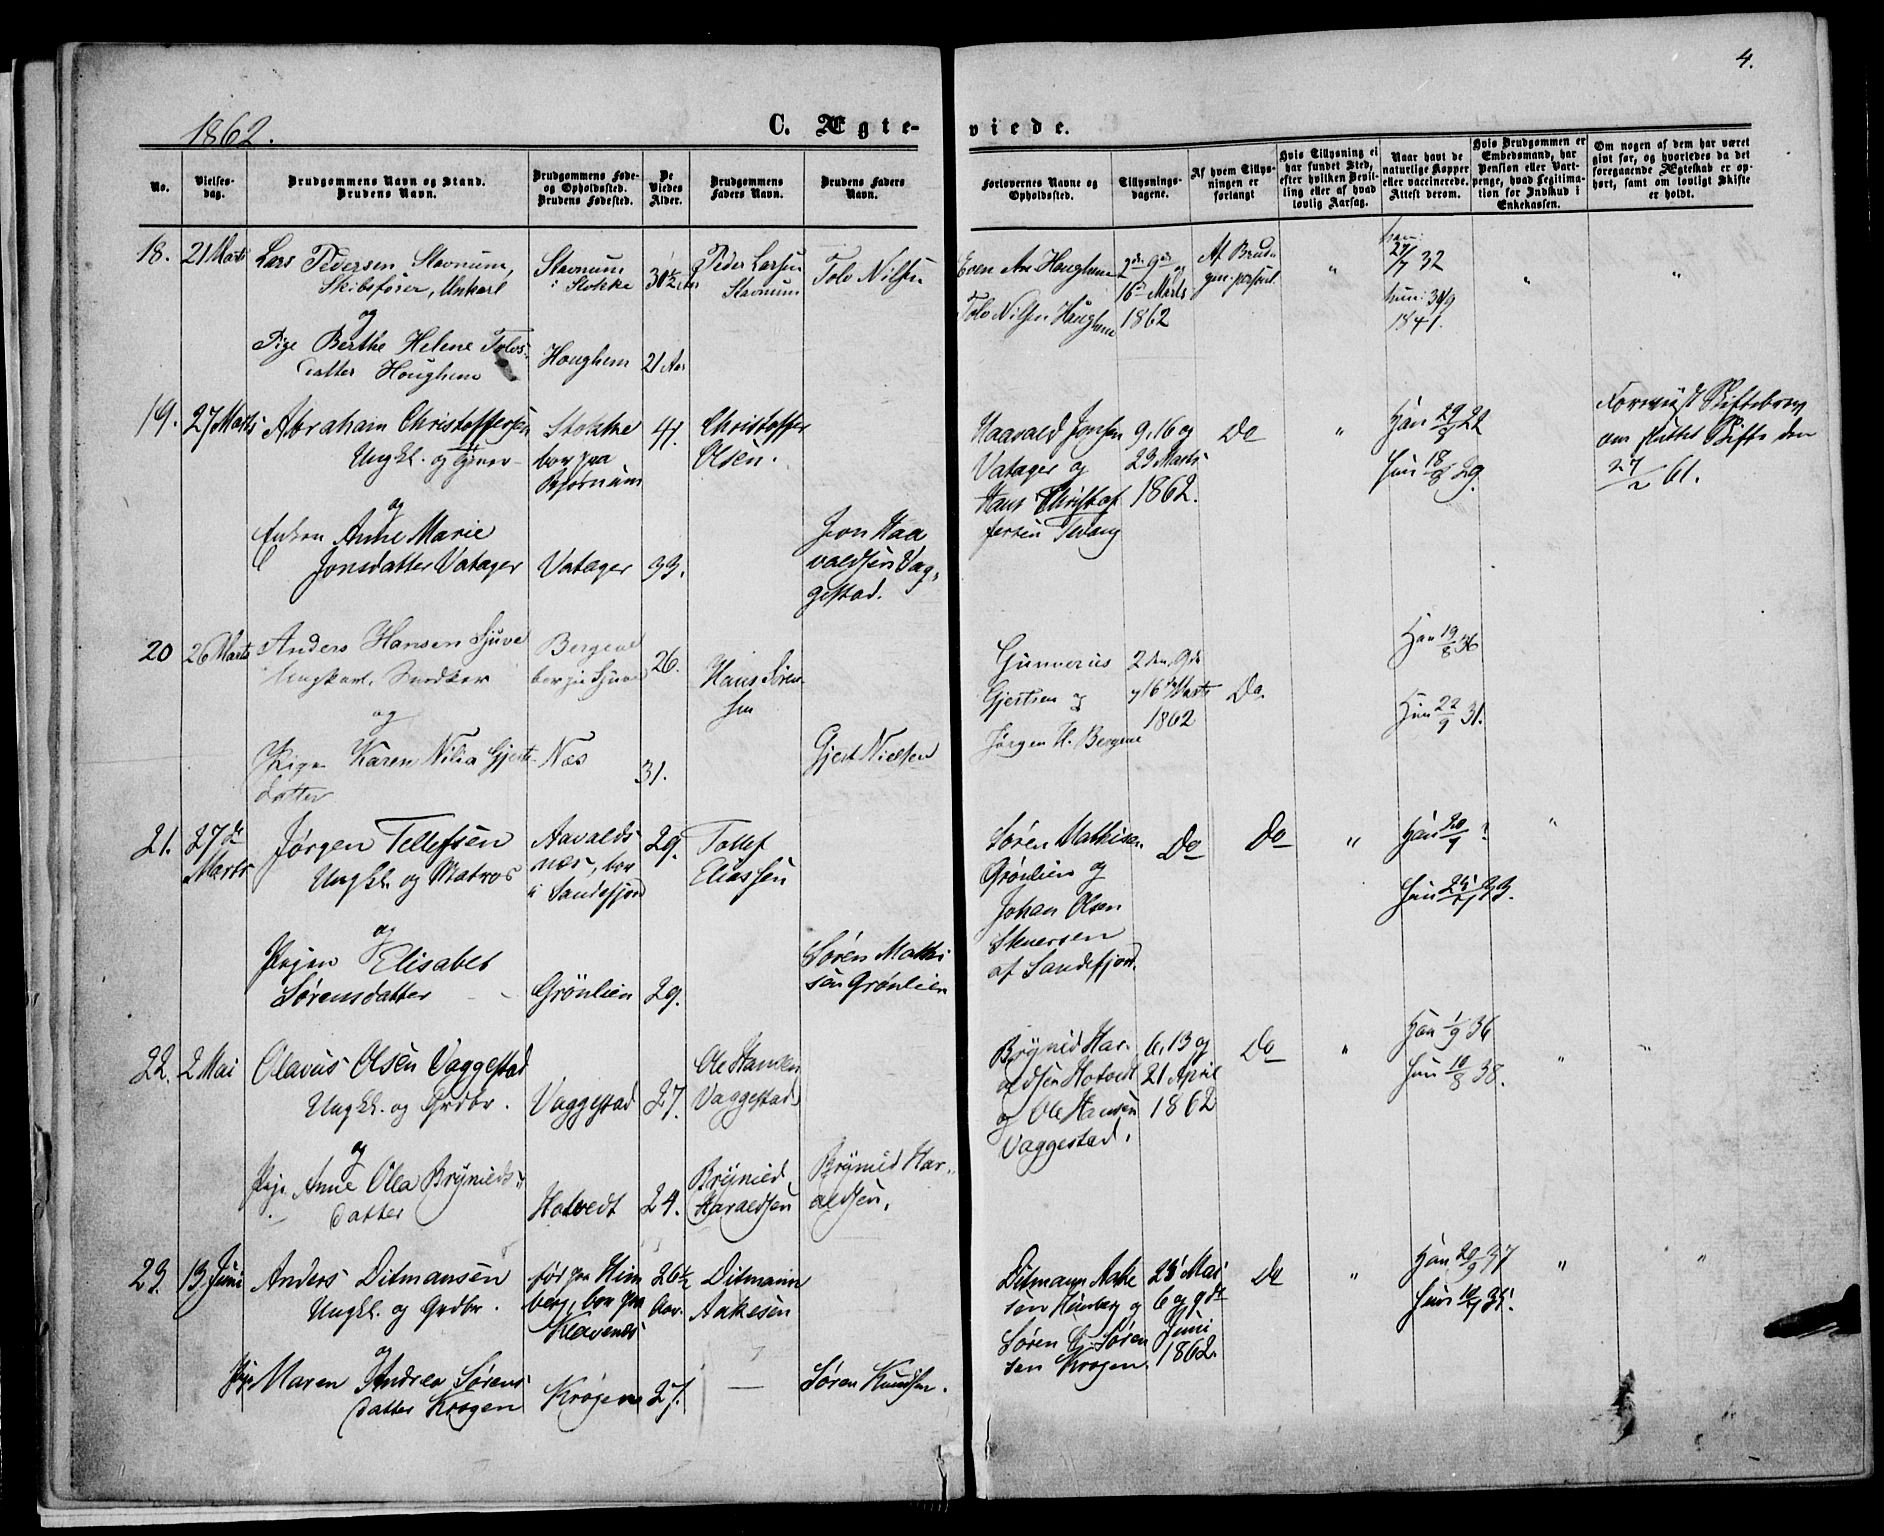 4.
1862.
C. Ægteviede.
No.
Vielses-
dag.
Brudgommens Navn og Stand.
Brudens Navn.
Brudgommens Føde-
og Opholdssted.
Brudens Fødested.
De
Viedes
Alder.
Brudgommens
Faders Navn.
Brudens Faders
Navn.
Forlovernes Navne og
Opholdssted.
Tillysnings-
dagene.
Af hvem Tillys-
ningen er
forlangt
Hvis Tillysning ei
har fundet Sted,
efter hvilken Bevil-
ling eller af hvad
lovlig Aarsag.
Naar havt de
naturlige Kopper
eller vaccinerede.
Attest derom.
Hvis Brudgommen er
Embedsmand, har
Pension eller Vart-
penge, hvad Legitima-
tion for Indskud i
Enkekassen.
Om nogen af dem har været
givt før, og hvorledes da det
foregaaende Ægteskab er op-
hørt, samt om lovligt Skifte
er holdt.
18.
21 Marts
Lars Pedersen Stavnum,
Skibsfører, Unkarl
og
Pige Berthe Helene Tolvs-
datter Houghem
Stavnum
i Stokke
Houghem
30½ Aar
21 Aar
Peder Larsen
Stavnum
Tolv Nilsen
Even Houghem
Tolv Nilsen Houghem
2den 9de og
16de Marts
1862
Af Brud-
gom. personl.
"
han:
27/7 32
hun: 30/9
1841.
"
"
19.
27 Marts
Abraham Christoffersen
Ungkl. og
og
Enken Anne Marie
Jonsdatter Vatager
Stokke
bor paa
Bjørnum
Vatager
41.
33.
Christoffer
Olsen.
Jon Haa
valdsen Vag-
gestad.
Haavald Jonsen
Vatager og
Hans Christof
fersen
9, 16 og
23 Marts
1862.
Do
"
Han 29/9 22
Hun 18/8 29.
Foreviist Skiftebrev
om sluttet Skifte den
27/2 61.
20
26 Marts
Anders Hansen Sjuve
Ungkarl, Snedker
og
Pige Karen Nilia Gjerts-
datter
Bergene
bor paa Sjuve
Næs
26.
31.
Hans Søren-
sen
Gjert Nielsen
Gunnerius
Gjertsen og
Jørgen H. Bergene
2den, 9de
og 16de Marts
1862
Do.
Han 19/8 36
Hun 22/9 31.
21.
27de
Marts
Jørgen Tellefsen
Ungkl. og Matros
og
Pigen Elisabet
Sørensdatter
Aavalds
næs, bor
i Sandefjord
Grönlien
29.
29.
Tollef
Eliassen
Søren Mathi
sen Grönlien
Søren Mathisen
Grönlien og
Johan Olsen
af Sandefjord.
Do
Do
"
Han 20/9 ?
Hun 33.
"
22.
2 Mai
Olavus Olsen Vaggestad
Ungkl. og Grdbr.
og
Pige Anne Olea Brynilds-
datter
Vaggestad
Hotvedt
27.
24.
Ole Hansen
Vaggestad
Brynild
Haraldsen
Brynild Har-
aldsen.
Brynild Har-
aldsen Hotvedt
og Ole Hansen
Vaggestad.
6, 13 og
21 April
1862
Do
"
Han 1/9 36
Hun 10/8 38.
"
"
23.
13 Juni
Anders Ditmansen
Ungkl. og Grdbr.
og
Pige Maren Andrea Sørens
datter Krogen
før paa Him
berg, bor paa
Klavenes
Krogen
26½
Aar.
27.
Ditmann
Aakesen
—
Søren Knudsen.
Ditmann Aake
sen Himberg og
Søren C. Søren
sen Krogen.
25 Mai
6 og 9de
Juni
1862.
Do
"
Han 20/9 37
Hun 35.
"
"